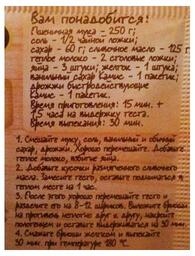 Вам понадобится:
Пшеничная мука - 250 г;
соль - 1/2 чайной ложки;
сахар - 60 г; сливочное масло - 125 г
теплое молоко - 2 столовые ложки;
яйца - 3 штуки; желток - 1 штука;
ванильный сахар - 1 пакетик;
дрожжи быстродействующие
- 1 пакетик.
Время приготовления: 15 мин. +
1,5 часа на выдержку теста.
Время выпекания: 30 мин.
1. Смешайте муку, соль, ванильный и обычный
сахар, дрожжи. Хорошо перемешайте. Добавьте
теплое молоко, взбитые яйца.
2. Добавьте кусочки размягченного сливочного
масла. Замесите тесто, оставьте подниматься в
теплом месте на 1 час.
3. После этого хорошо перемешайте тесто и
разделите его на 8-12 шариков. Выложите
на противень друг к другу, накройте
полотенцем и оставьте на выдержку 30 мин.
4. Смажьте бриоши желтком и выпекайте
30 мин. при температуре 180 °C.